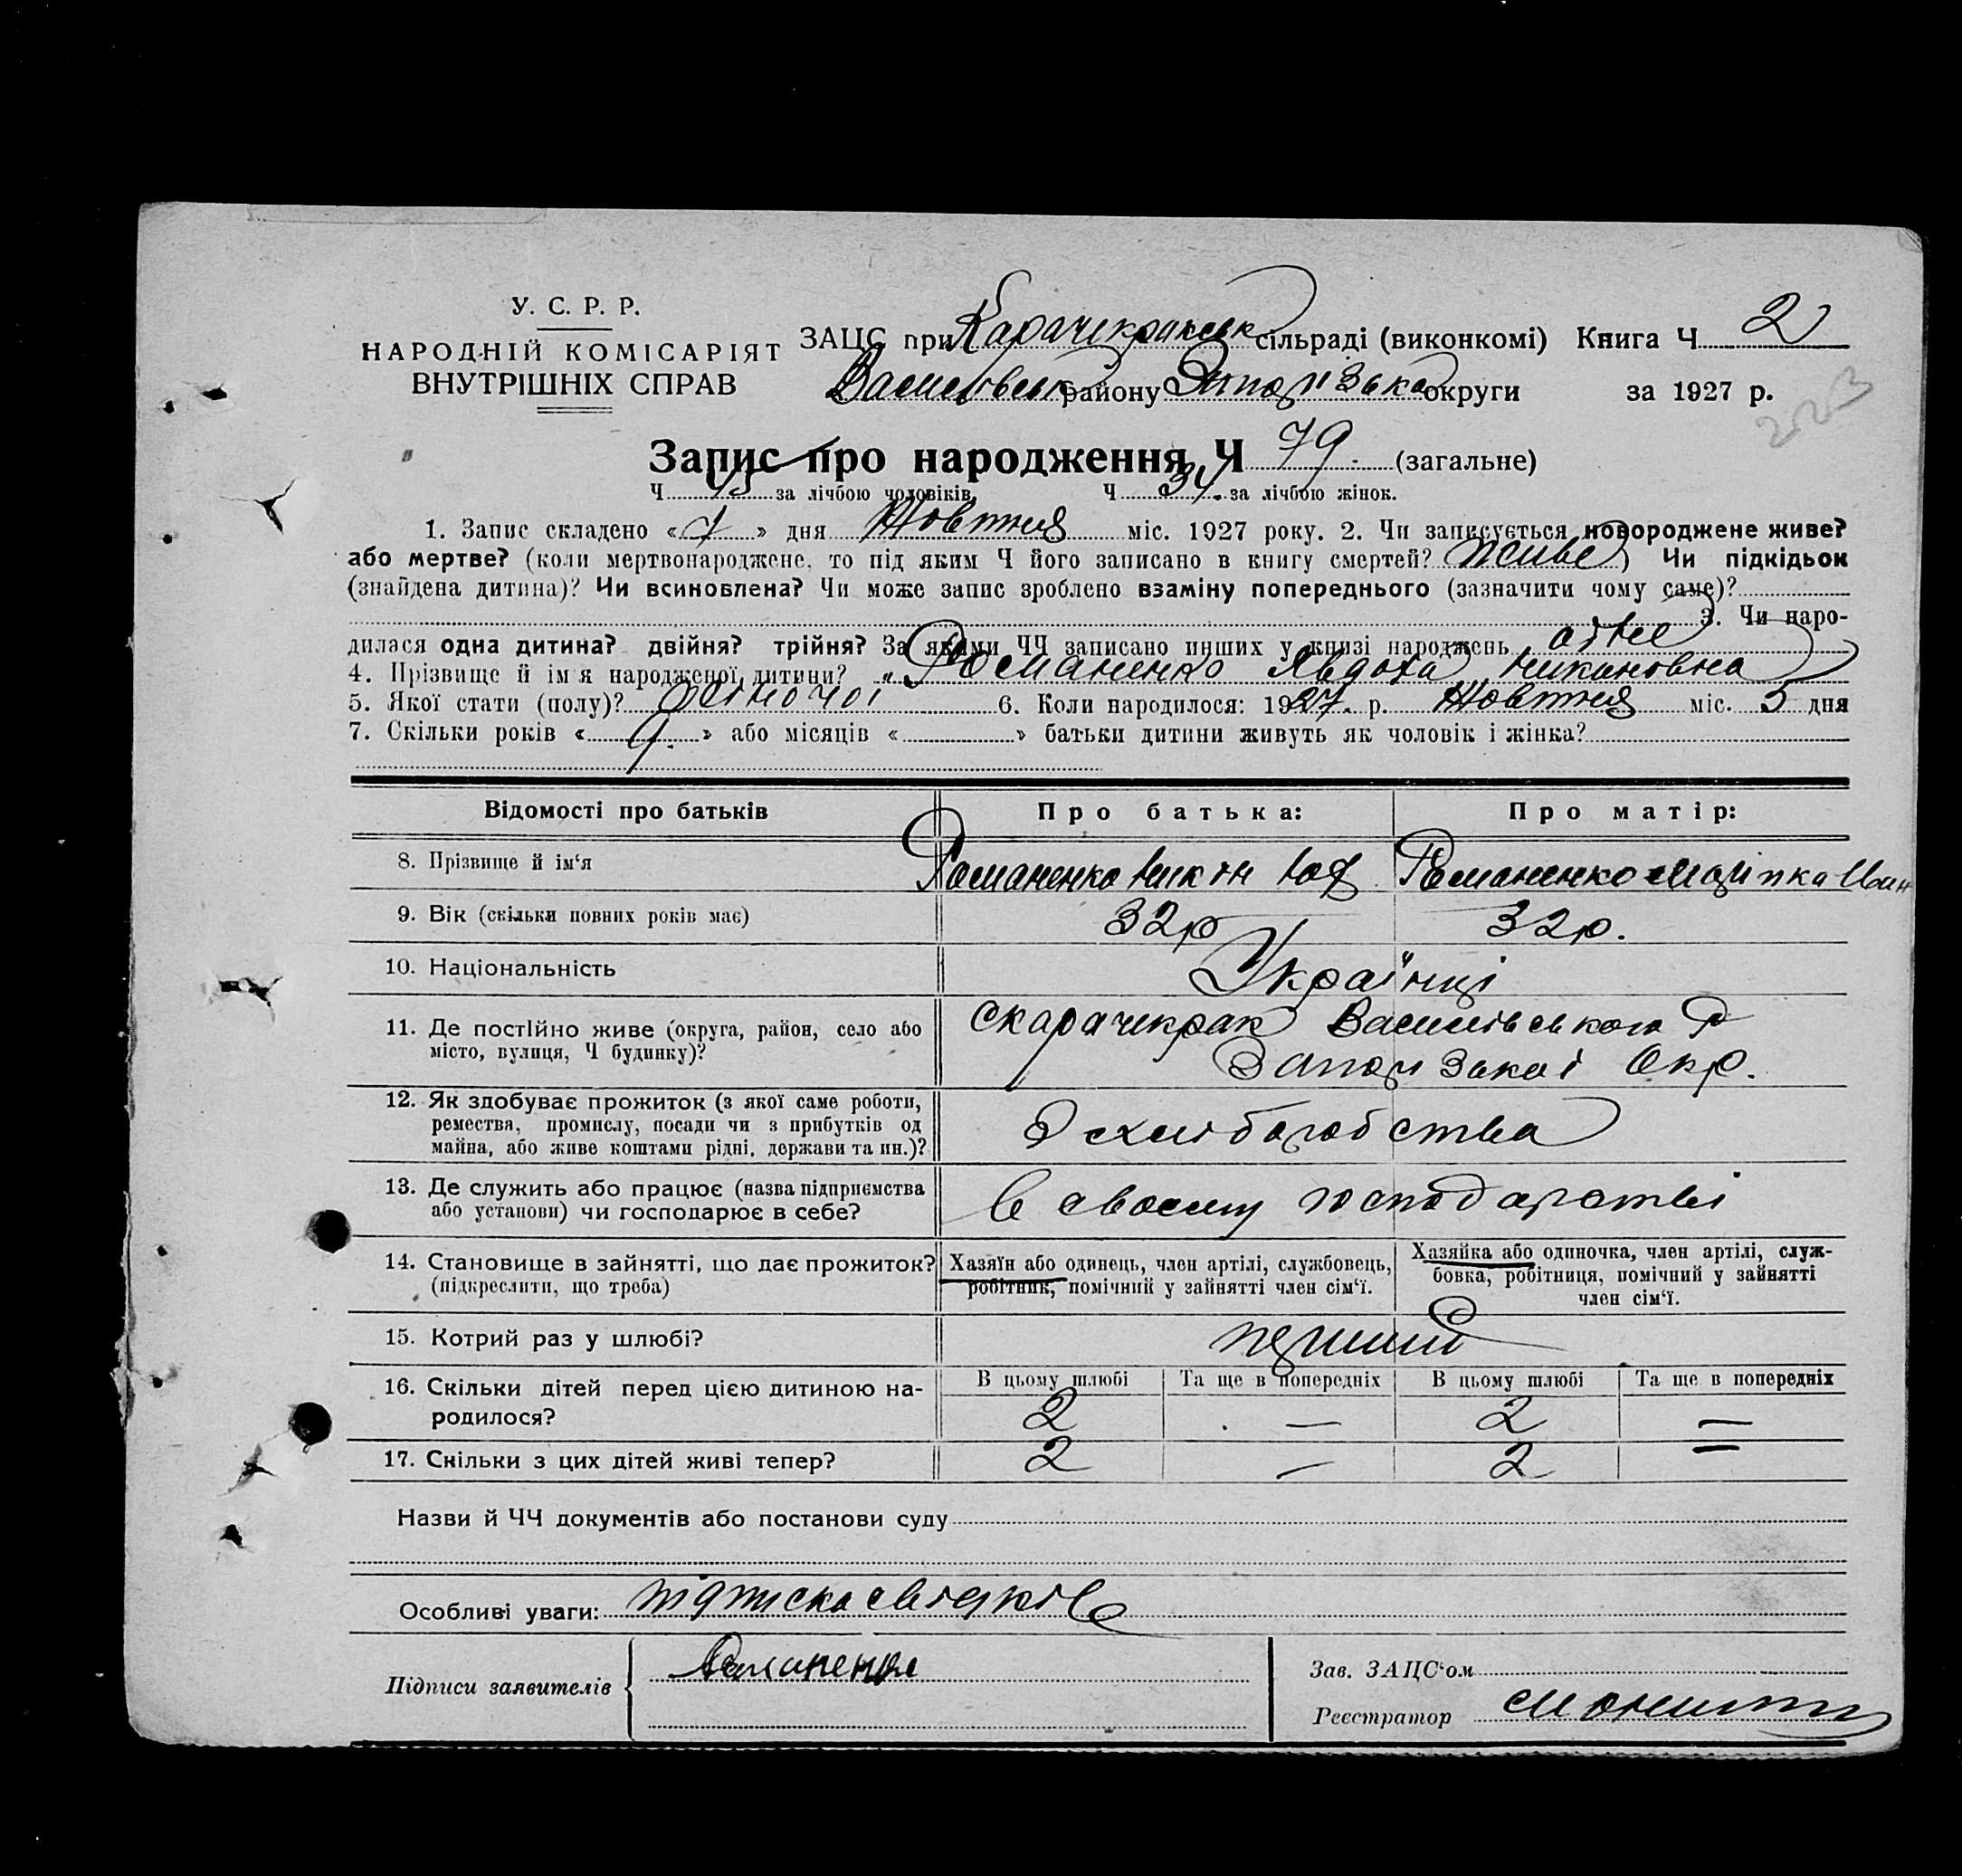 У. С. Р. Р.
НАРОДНІЙ КОМІСАРІЯТ
ВНУТРІШНІХ СПРАВ
ЗАЦС при Карачикракськ сільраді (виконкомі) Книга Ч 2
Василівськ району Запорізька округи за 1927 р.
223
Запис про народження Ч 79. (загальне)
Ч 45 за лічбою чоловіків, Ч 34. за лічбою жінок.
1. Запис складено «7» дня Жовтня міс. 1927 року. 2. Чи записується новороджене живе?
або мертве? (коли мертвонароджене, то під яким Ч його записано в книгу смертей? живе) Чи підкідьок
(знайдена дитина)? Чи всиновлена? Чи може запис зроблено взаміну попереднього (зазначити чому саме)?
3. Чи наро-
дилася одна дитина? двійня? трійня? За якими ЧЧ записано инших у книзі народжень одне
4. Прізвище й ім'я народженої дитини? „Романенко Явдоха Никоновна
5. Якої стати (полу)? жіночої 6. Коли народилося: 1927. р. Жовтня міс. 5 дня
7. Скільки років «9.» або місяців « » батьки дитини живуть як чоловік і жінка?
Відомості про батьків Про батька: Про матір:
8. Прізвище й ім'я Романенко Никон Романенко Марілка Иван
9. Вік (скільки повних років має) 32р 32р.
10. Національність Українці
11. Де постійно живе (округа, район, село або
місто, вулиця, Ч будинку)?
с карачикрак Василівського Р
Запорізької Окр.
12. Як здобуває прожиток (з якої саме роботи,
ремества, промислу, посади чи з прибутків од
майна, або живе коштами рідні, держави та ин.)?
З хлиборобства
13. Де служить або працює (назва підприємства
або установи) чи господарює в себе?
в своєму господарстві
14. Становище в зайнятті, що дає прожиток?
(підкреслити, що треба)
Хазяїн або одинець, член артілі, службовець,
робітник, помічний у зайнятті член сім'ї.
Хазяйка або одиночка, член артілі, служ-
бовка, робітниця, помічний у зайнятті
член сім'ї.
15. Котрий раз у шлюбі? перший
16. Скільки дітей перед цією дитиною на-
родилося?
В цьому шлюбі Та ще в попередніх В цьому шлюбі Та ще в попередніх
2 — 2 —
17. Скільки з цих дітей живі тепер? 2 — 2 —
Назви й ЧЧ документів або постанови суду
Особливі уваги: підписка свідків
Підписи заявителів Романенко
Зав. ЗАЦС'ом
Реєстратор